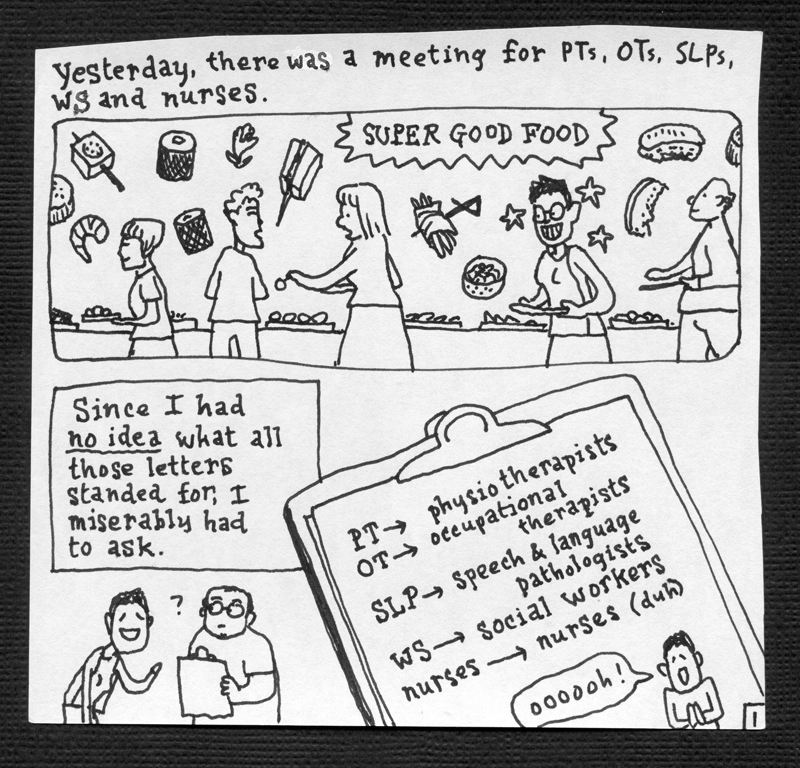 Yesterday, there was a meeting for PTs, OTs, SLPs,
WS and nurses.
SUPER GOOD FOOD
Since I had
no idea what all
those letters
standed for, I
miserably had
to ask.
?
PT→ physiotherapists
OT→ occupational
therapists
SLP→ speech & language
pathologists
WS→ social workers
nurses→ nurses (duh)
oooooh!
1